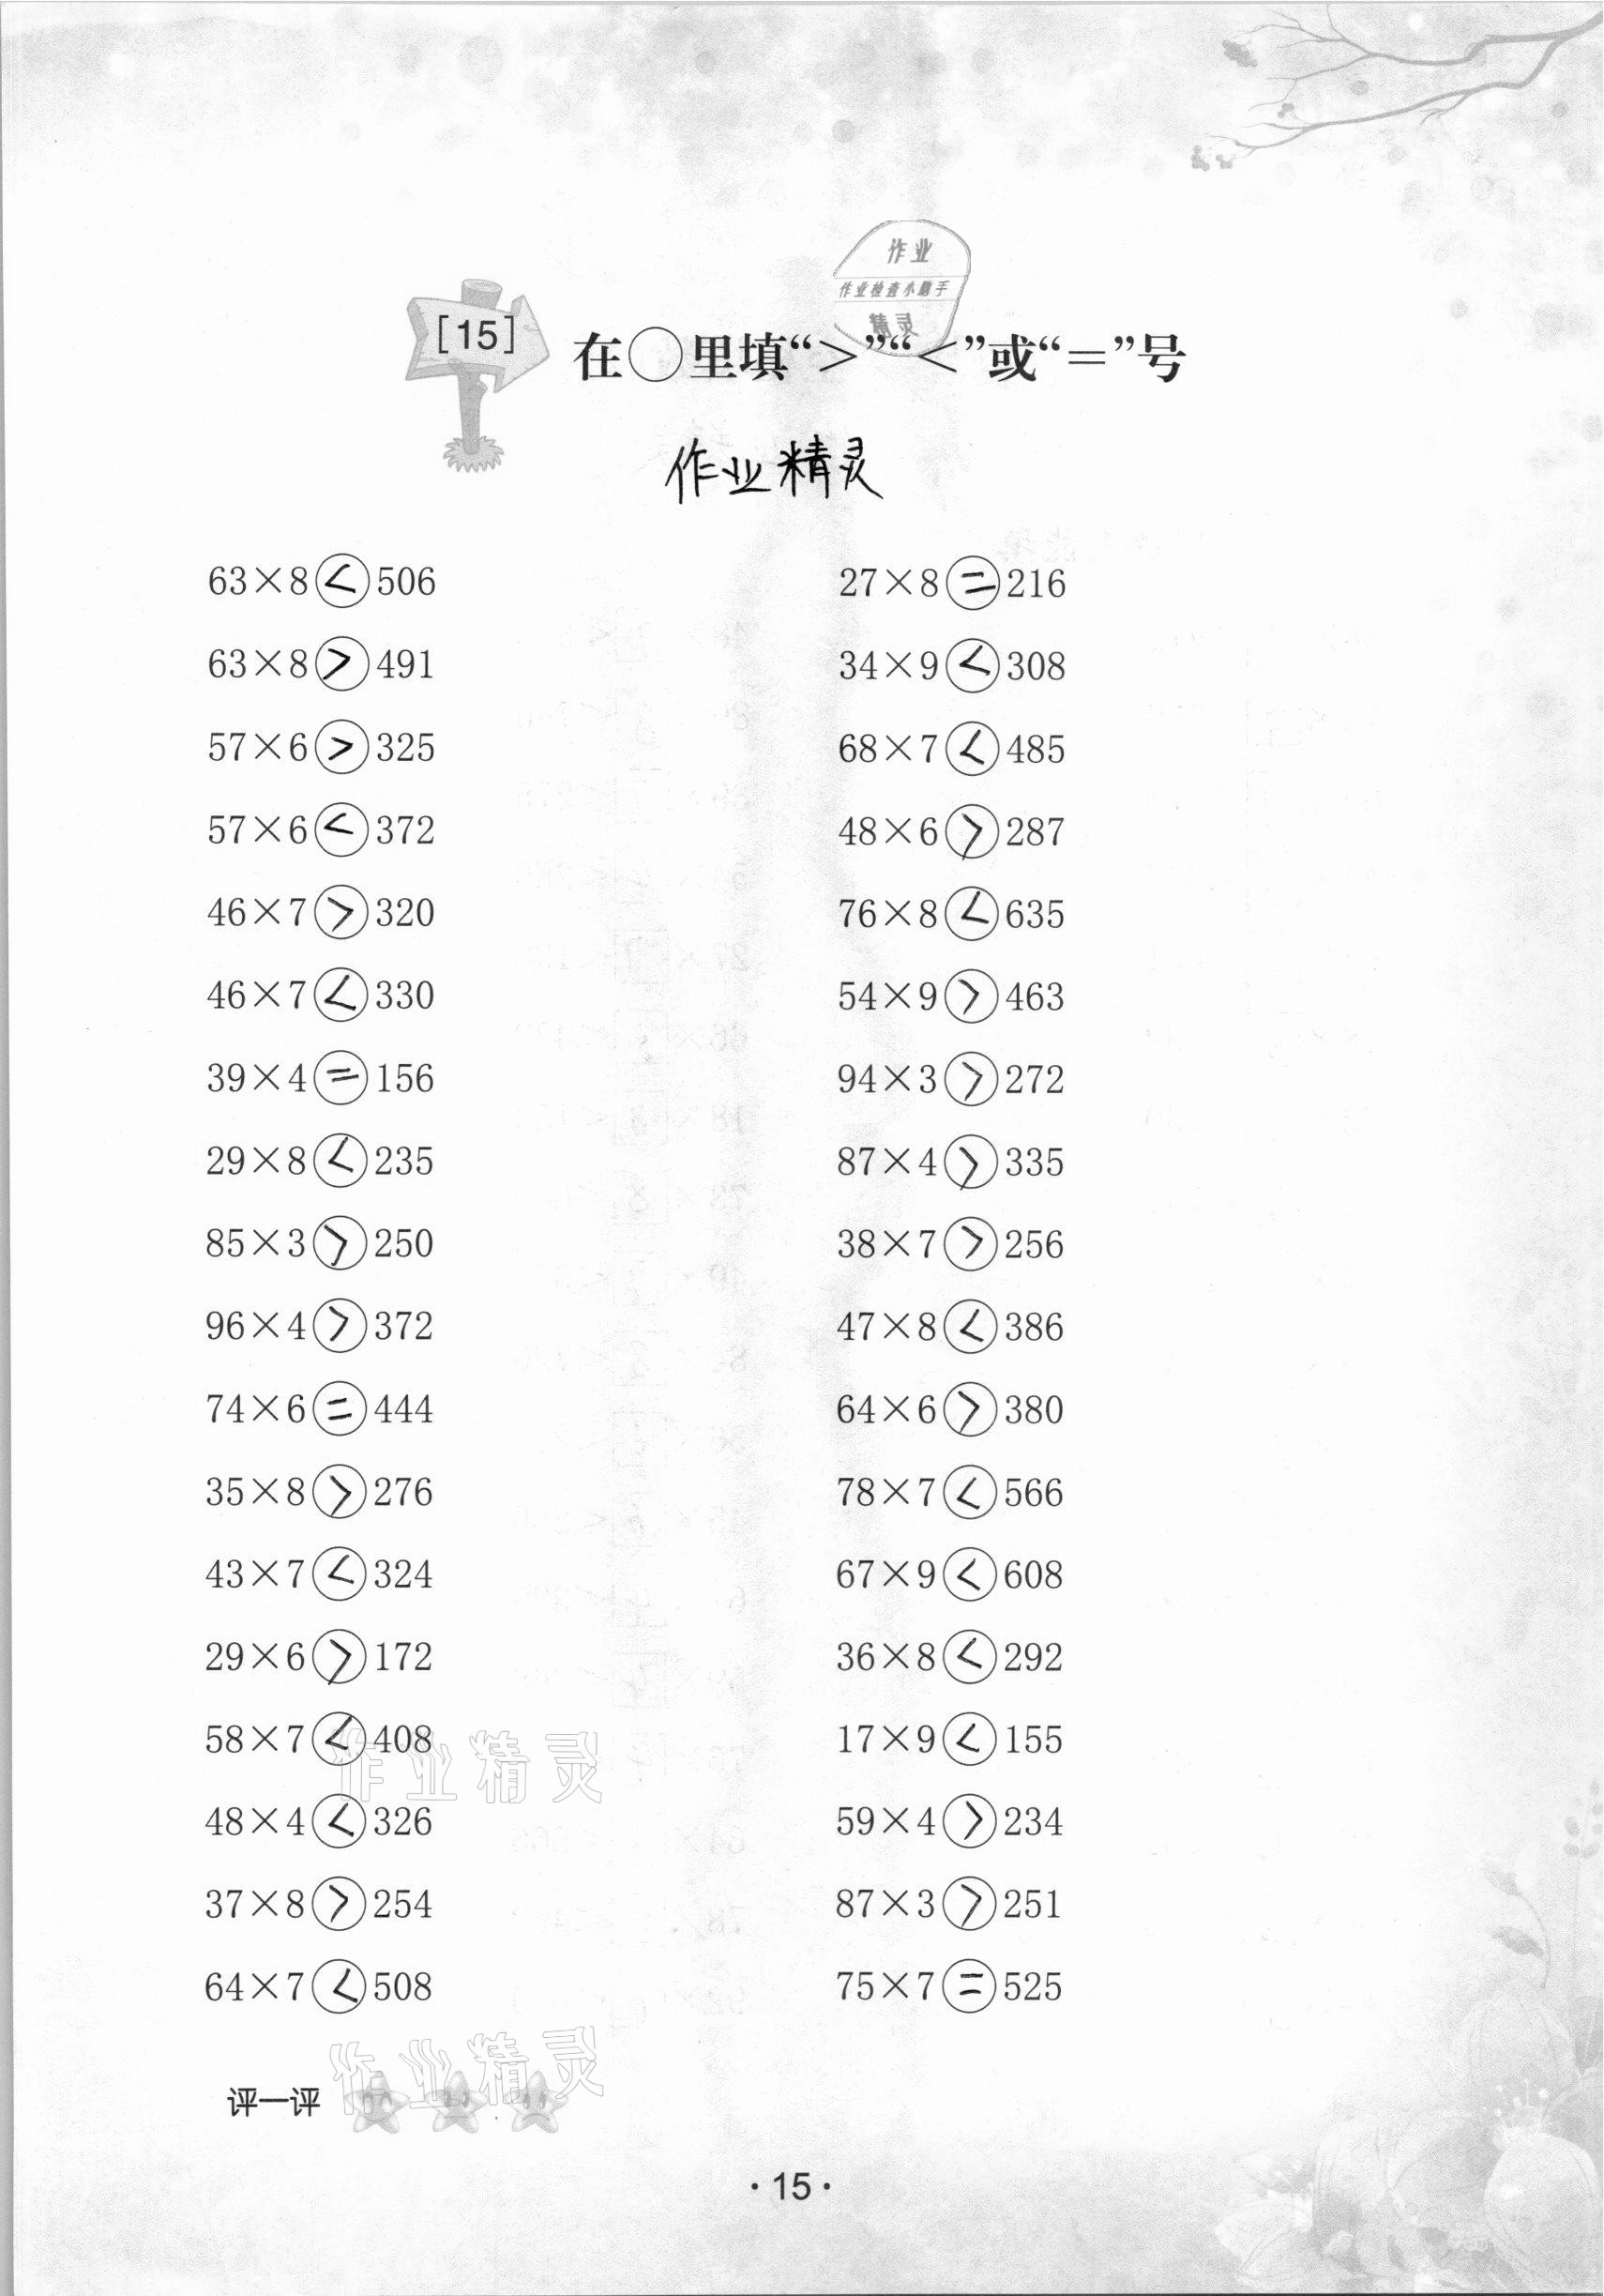 作业
作业检查小助手
精灵
[15] 在○里填“>”“<”或“=”号
作业精灵
63×8<506
63×8>491
57×6>325
57×6<372
46×7>320
46×7<330
39×4=156
29×8<235
85×3>250
96×4>372
74×6=444
35×8>276
43×7<324
29×6>172
58×7<408
48×4<326
37×8>254
64×7<508
27×8=216
34×9<308
68×7<485
48×6>287
76×8<635
54×9>463
94×3>272
87×4>335
38×7>256
47×8<386
64×6>380
78×7<566
67×9<608
36×8<292
17×9<155
59×4>234
87×3>251
75×7=525
作业精灵
作业精灵
评一评
·15·